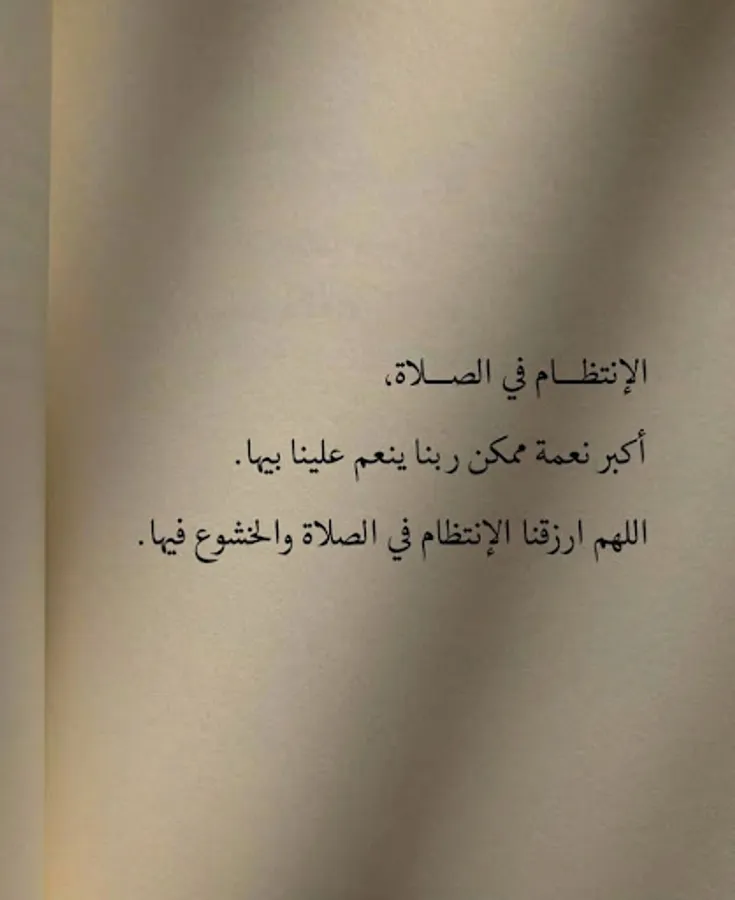 الإنتظـــام في الصـــلاة،
أكبر نعمة ممكن ربنا ينعم علينا بيها.
اللهم ارزقنا الإنتظام في الصلاة والخشوع فيها.